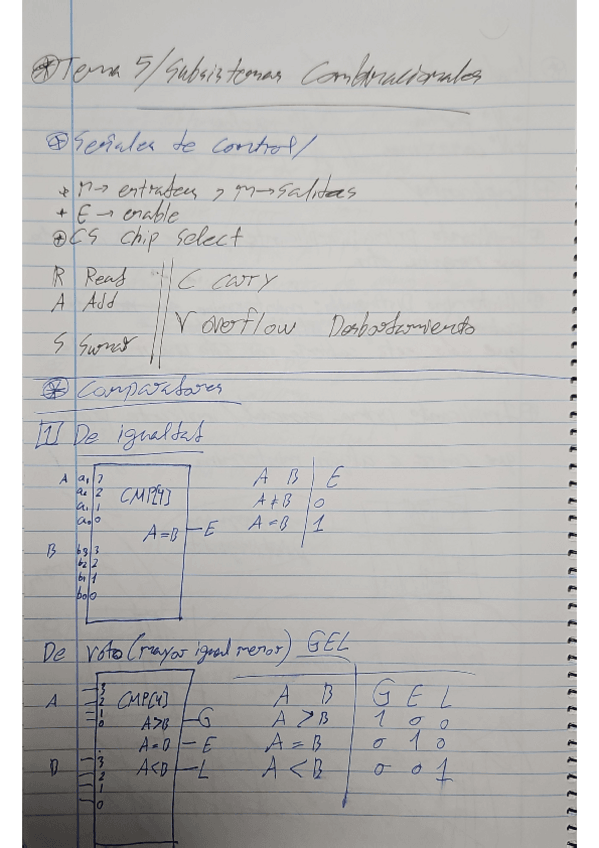 * Tema 5/ Subsistemas Combinacionales
* Señales de control/
* n→ entradas, m→ Salidas
+ E → enable
* CS Chip Select
R Read C Carry
A Add
V overflow Desbordamiento
S Sumar
* Comparadores
[1] De igualdad
A a₁ 3
a₂ 2
a₁ 1
a₀ 0
CMP[4]
A=B E
B b₃ 3
b₂ 2
b₁ 1
b₀ 0
A B E
A≠B 0
A=B 1
De (mayor igual menor) GEL
A 3
2
1
0
CMP[4]
A>B G
A=B E
A<B L
B 3
2
1
0
A B G E L
A > B 1 0 0
A = B 0 1 0
A < B 0 0 1